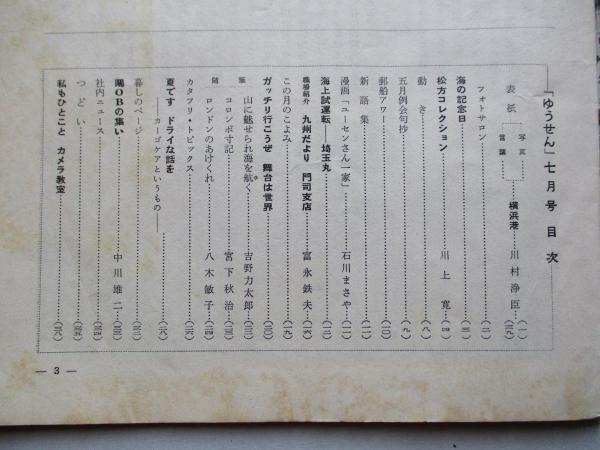 「ゆうせん」七月号 目次
表紙 写真 …… 横浜港 …… 川村浄臣 …(一)
言葉 ……(元)
フォトサロン ……(二)
海の記念日 ……(三)
松方コレクション …… 川上寛 …(四)
動き ……(八)
五月例会句抄 ……(九)
郵船アワー ……(一〇)
新語集 ……(一一)
漫画「ユーセンさん一家」 …… 石川まさや …(一二)
海上試運転──埼玉丸
職場紹介 九州だより 門司支店 …… 富永鉄夫
この月のこよみ
ガッチリ行こうぜ 舞台は世界 ……(二〇)
随筆 山に魅せられ海を航く …… 吉野力太郎
コロンボ寸記 …… 宮下秋治
ロンドンのあけくれ …… 八木敏子 …(二四)
カタフリ・トピックス
夏てす ドライな話を
──カーゴケアというもの──
暮しのページ
陽OBの集い …… 中川雄二
社内ニュース
つどい
私もひとこと カメラ教室
— 3 —